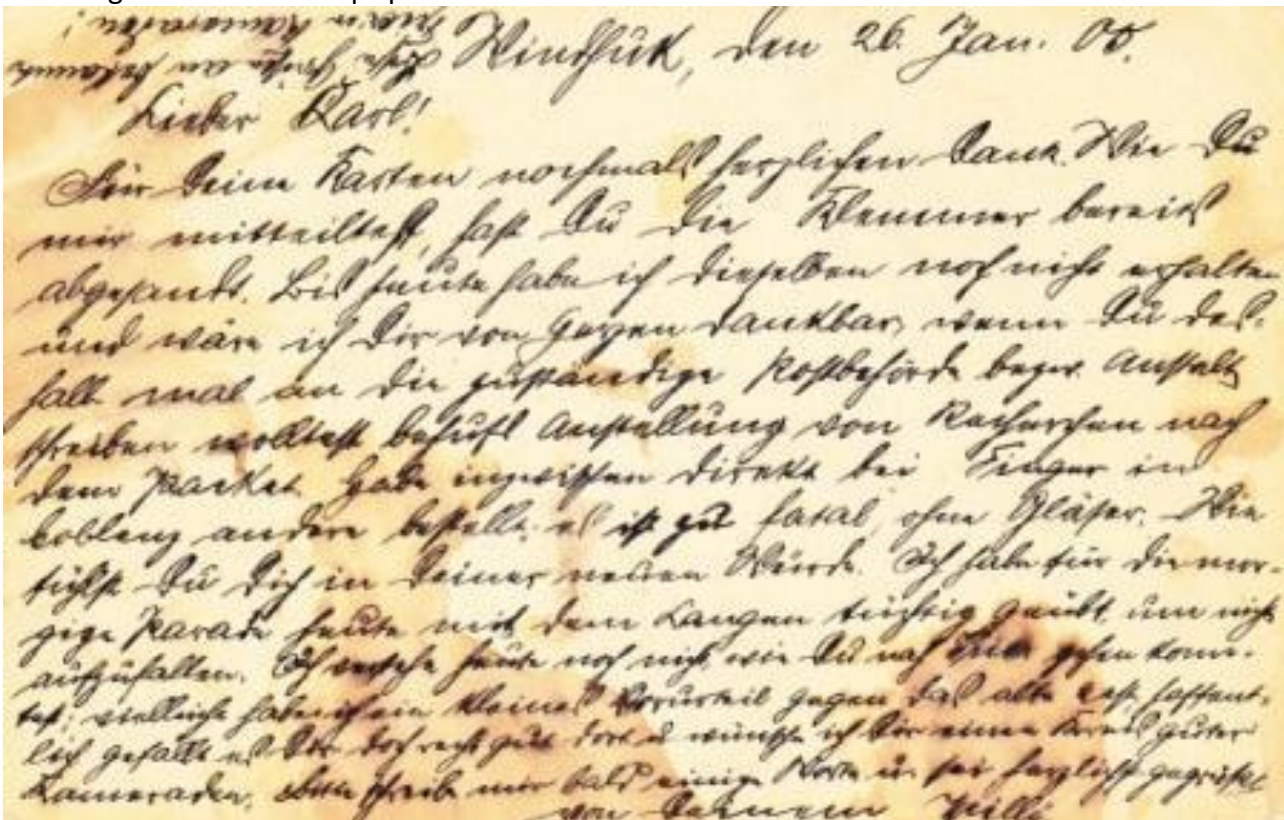 Windhuk, den 26. Jan. 06.
Lieber Karl!
Für Deine Karten nochmals herzlichen Dank. Wie Du
mir mitteiltest, hast Du die Klemmer bereits
abgesandt. Bis heute habe ich dieselben noch nicht erhalten
und wäre ich Dir von Herzen dankbar, wenn Du des-
halb mal an die zuständige Postbehörde bezw. Anstalt
schreiben wolltest behufs Anstellung von Recherchen nach
dem Packet. Habe inzwischen direkt bei in
Coblenz andere bestellt. es ist zu fatal, ohne Gläser. Wie
fühlst Du Dich in Deiner neuen Würde. Ich habe für die mor-
gige Parade heute mit dem Langen tüchtig geübt, um nicht
aufzufallen. Ich verstehe heute noch nicht, wie Du nach gehen konn-
test; vielleicht habe ich ein kleines Vorurteil gegen das alte Nest, hoffent-
lich gefällt es Dir doch recht gut dort u. wünsche ich Dir einen Kreis guter
Kameraden, bitte schreib mir bald einige Worte u. sei herzlichst gegrüßt
von Deinem Willi